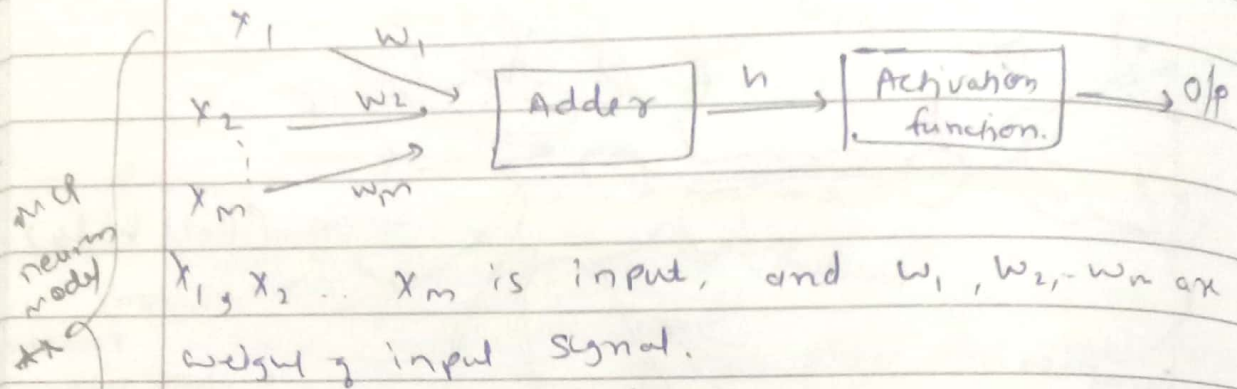 x1 w1
x2 w2 Adder h Activation function. O/p
xm wm
MCP neuron model
**
x1, x2 ... xm is input, and w1, w2, - wm are
weight of input signal.